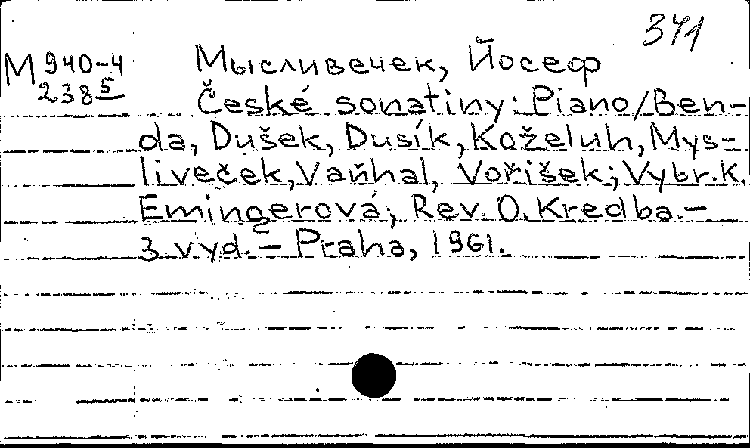 341
М 940-4 Мысливечек, Йосеф
238 5 České sonatiny: Piano/Ben-
da, Dušek, Dusík, Koželuh, Mys-
liveček, Vaňhal, Voříšek; Vybr. K.
Emingerová; Rev. O. Kredba.—
3 vyd.— Praha, 1961.